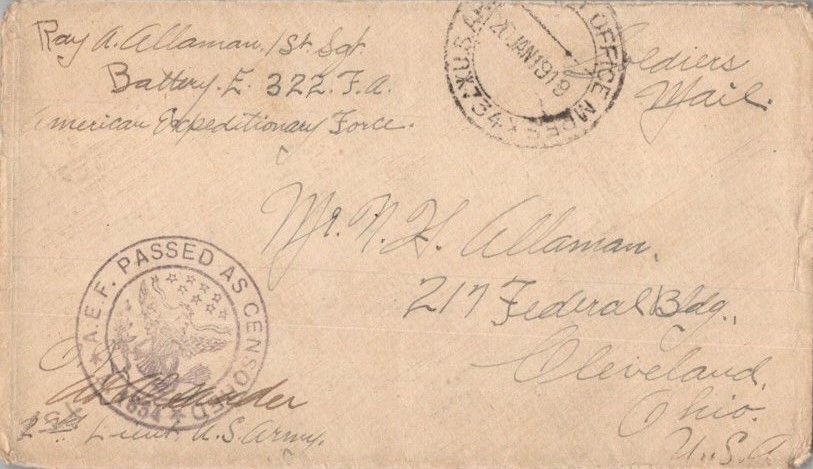 Ray A. Allaman, 1st. Sgt.
Battery. E. 322. F.A.
American Expeditionary Force.
Soldiers
Mail.
U.S. OFFICE 734
20 JAN 1919
Mr. N. H. Allaman.
217 Federal Bldg.,
Cleveland,
Ohio.
U.S.A
A.E.F. PASSED AS CENSORED
Lieut. U.S. Army.